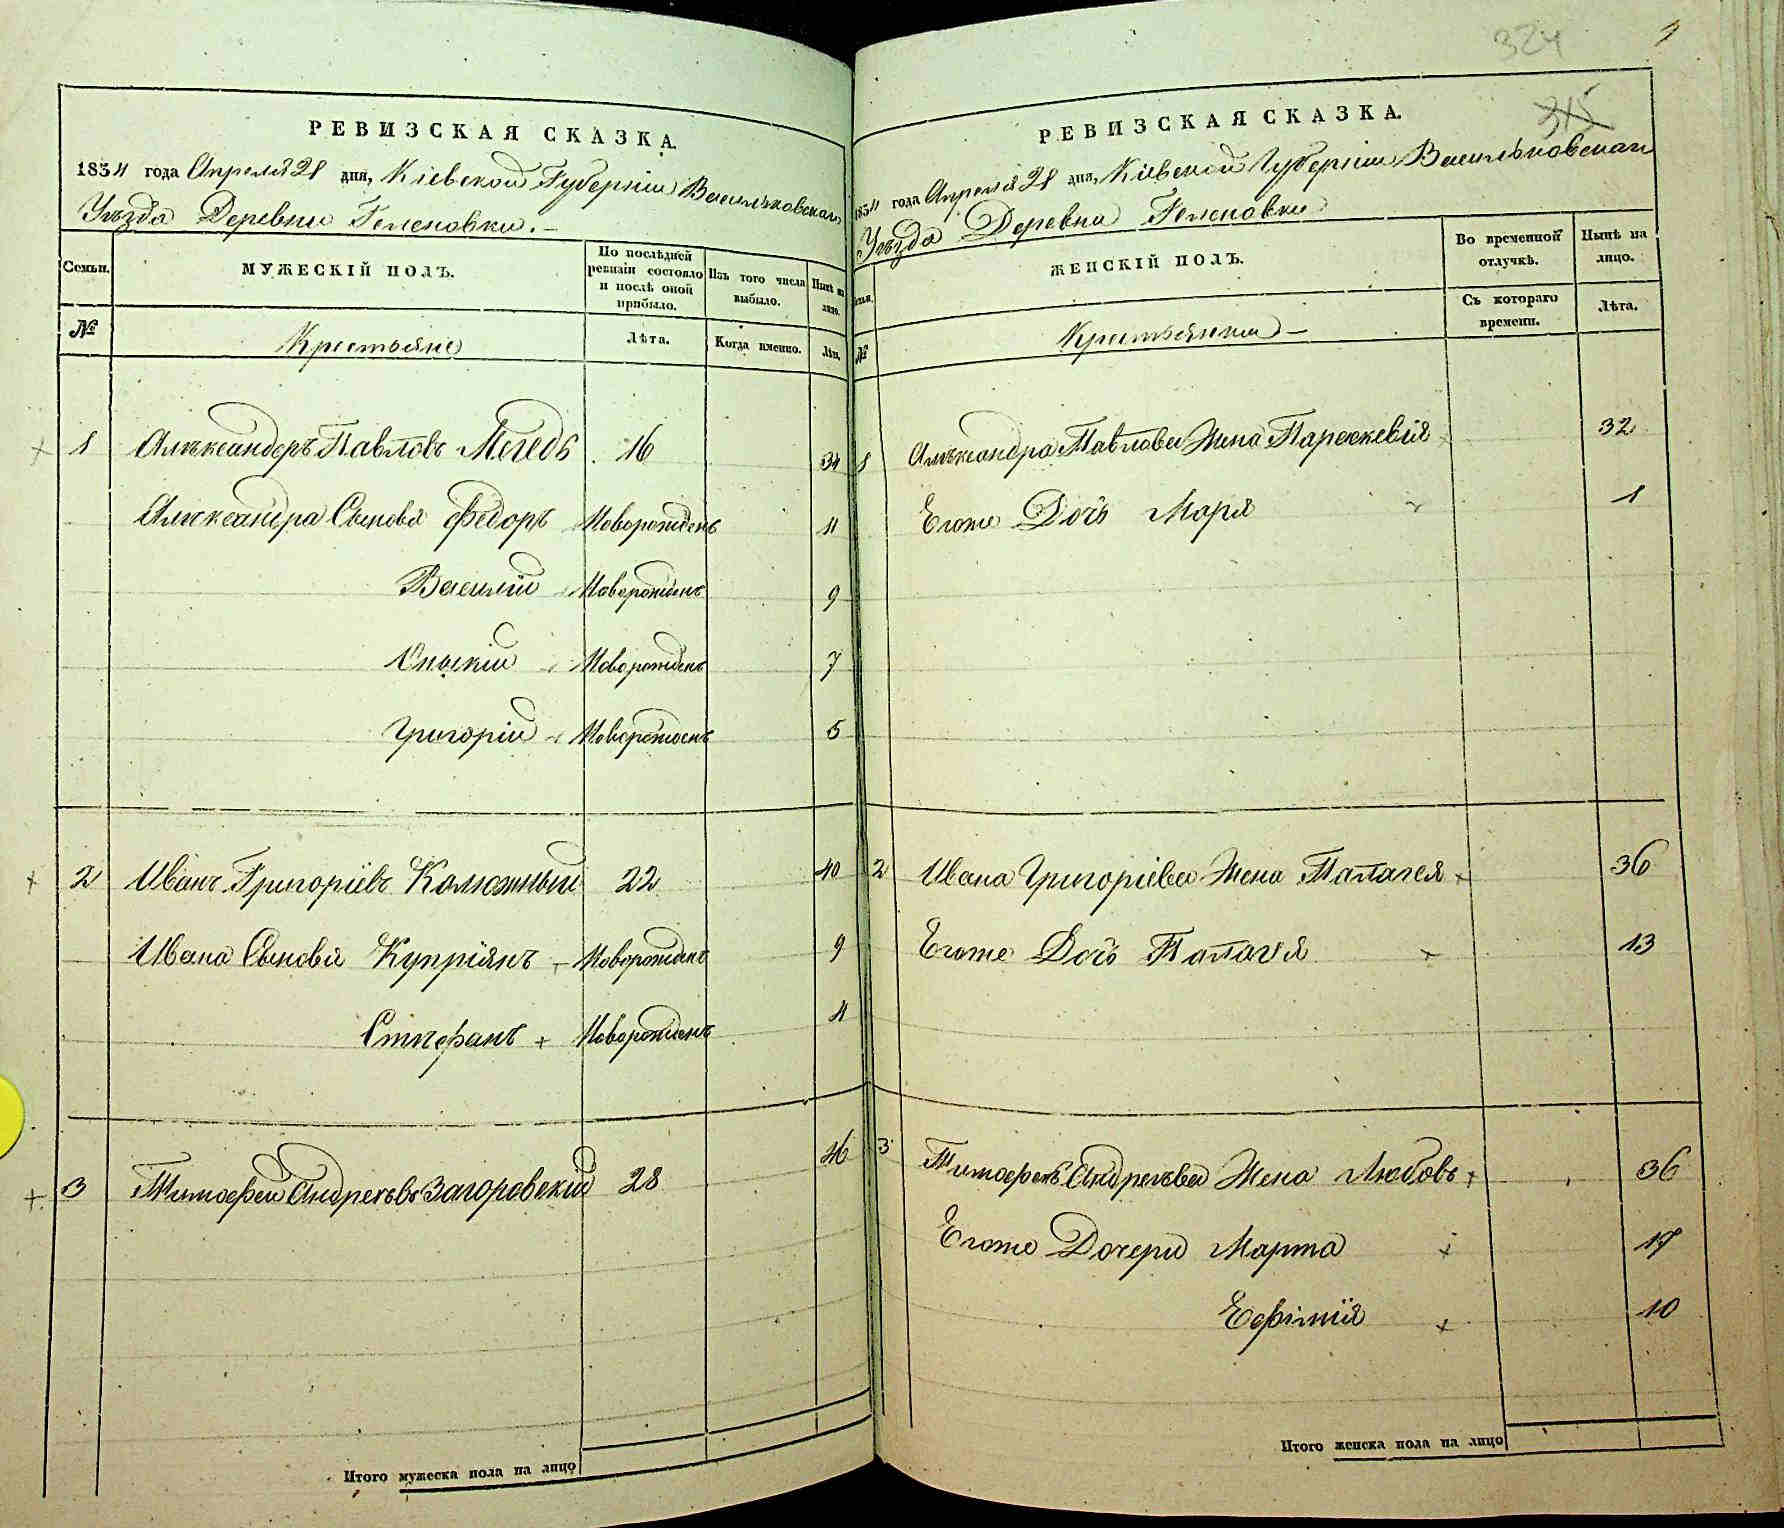 324
9
315
РЕВИЗСКАЯ СКАЗКА.
1854 года Апреля 28 дня, Кіевской Губерніи Васильковскаго
Уѣзда Деревни Геленовки.
Семьи. МУЖЕСКІЙ ПОЛЪ. По послѣдней ревизіи состояло и послѣ оной прибыло. Изъ того числа выбыло. Нынѣ на лицо.
№ Крестьяне Лѣта. Когда именно. Лѣта.
1 Алѣксандеръ Павловъ Мегедь 16 34
Алѣксандра Сыновя Федоръ Новорожденъ 11
Василій Новорожденъ 9
Новорожденъ 7
Григорій Новорожденъ 5
2 Иванъ Григоріевъ Калюжный 22 40
Ивана Сыновя Купріянъ Новорожденъ 9
Стигефанъ Новорожденъ 4
3 Тимофей Андреѣвъ Загоровскій 28 46
Итого мужеска пола на лицо
РЕВИЗСКАЯ СКАЗКА.
1854 года Апреля 28 дня, Кіевской Губерніи Васильковскаго
Уѣзда Деревни Геленовки
Семьи. ЖЕНСКІЙ ПОЛЪ. Во временной отлучкѣ. Нынѣ на лицо.
№ Крестьянки Съ котораго времени. Лѣта.
1 Алѣксандра Павлова Жена Параскевія 32
Егоже Дочь Маря 1
2 Ивана Григоріева Жена Палагея 36
Егоже Дочь Палагея 13
3 Тимофея Андреѣва Жена Любовь 36
Егоже Дочери Марта 17
Ефимія 10
Итого женска пола на лицо